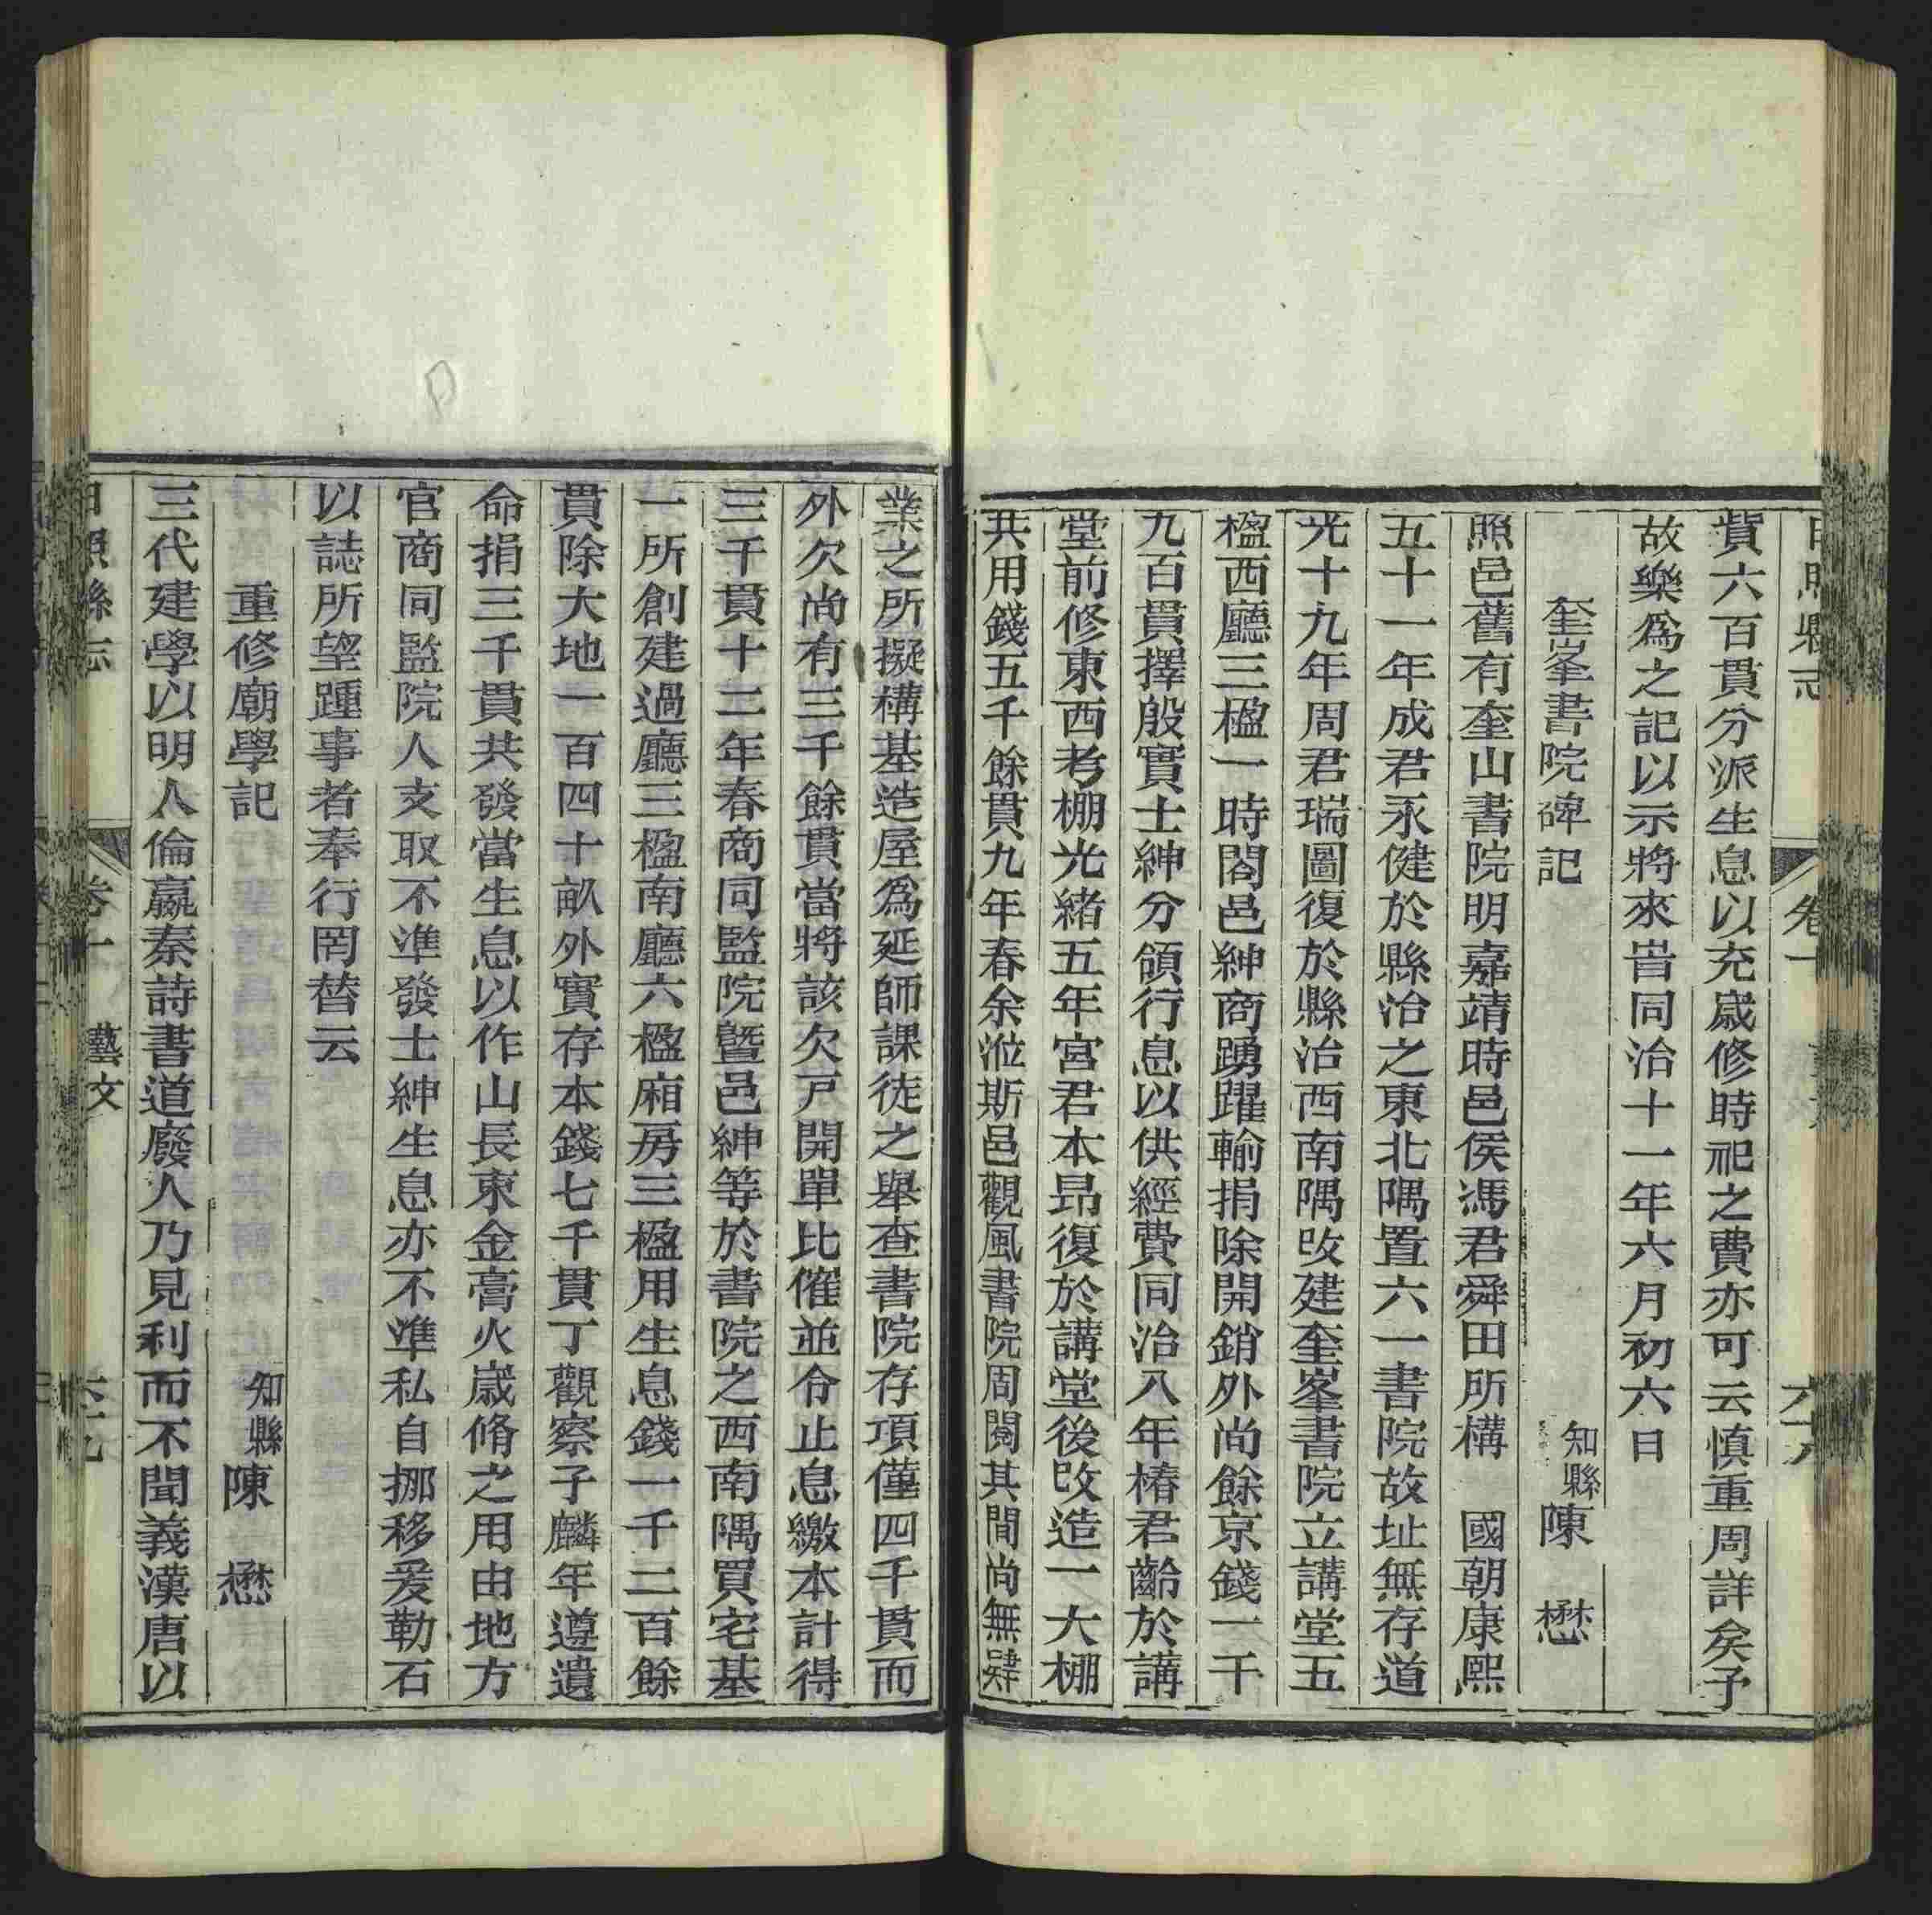 日照縣志
卷十
貲六百貫分派生息以充歲修時祀之費亦可云慎重周詳矣予
故樂爲之記以示將來旹同治十一年六月初六日
奎峯書院碑記
知縣陳 懋
照邑舊有奎山書院明嘉靖時邑侯馮君舜田所構 國朝康熙
五十一年成君永健於縣治之東北隅置六一書院故址無存道
光十九年周君瑞圖復於縣治西南隅改建奎峯書院立講堂五
楹西廳三楹一時閤邑紳商踴躍輸捐除開銷外尚餘京錢一千
九百貫擇殷實士紳分領行息以供經費同治八年椿君齡於講
堂前修東西考棚光緒五年宮君本昂復於講堂後改造一大棚
共用錢五千餘貫九年春余涖斯邑觀風書院周閱其間尚無肄
業之所擬構基造屋爲延師課徒之舉查書院存項僅四千貫而
外欠尚有三千餘貫當將該欠戸開單比催並令止息繳本計得
三千貫十二年春商同監院曁邑紳等於書院之西南隅買宅基
一所創建過廳三楹南廳六楹廂房三楹用生息錢一千二百餘
貫除大地一百四十畝外實存本錢七千貫丁觀察子麟年遵遺
命捐三千貫共發當生息以作山長束金膏火歲脩之用由地方
官商同監院人支取不準發士紳生息亦不準私自挪移爰勒石
以誌所望踵事者奉行罔替云
重修廟學記
知縣陳 懋
三代建學以明人倫嬴秦詩書道廢人乃見利而不聞義漢唐以
日照縣志
卷十 藝文